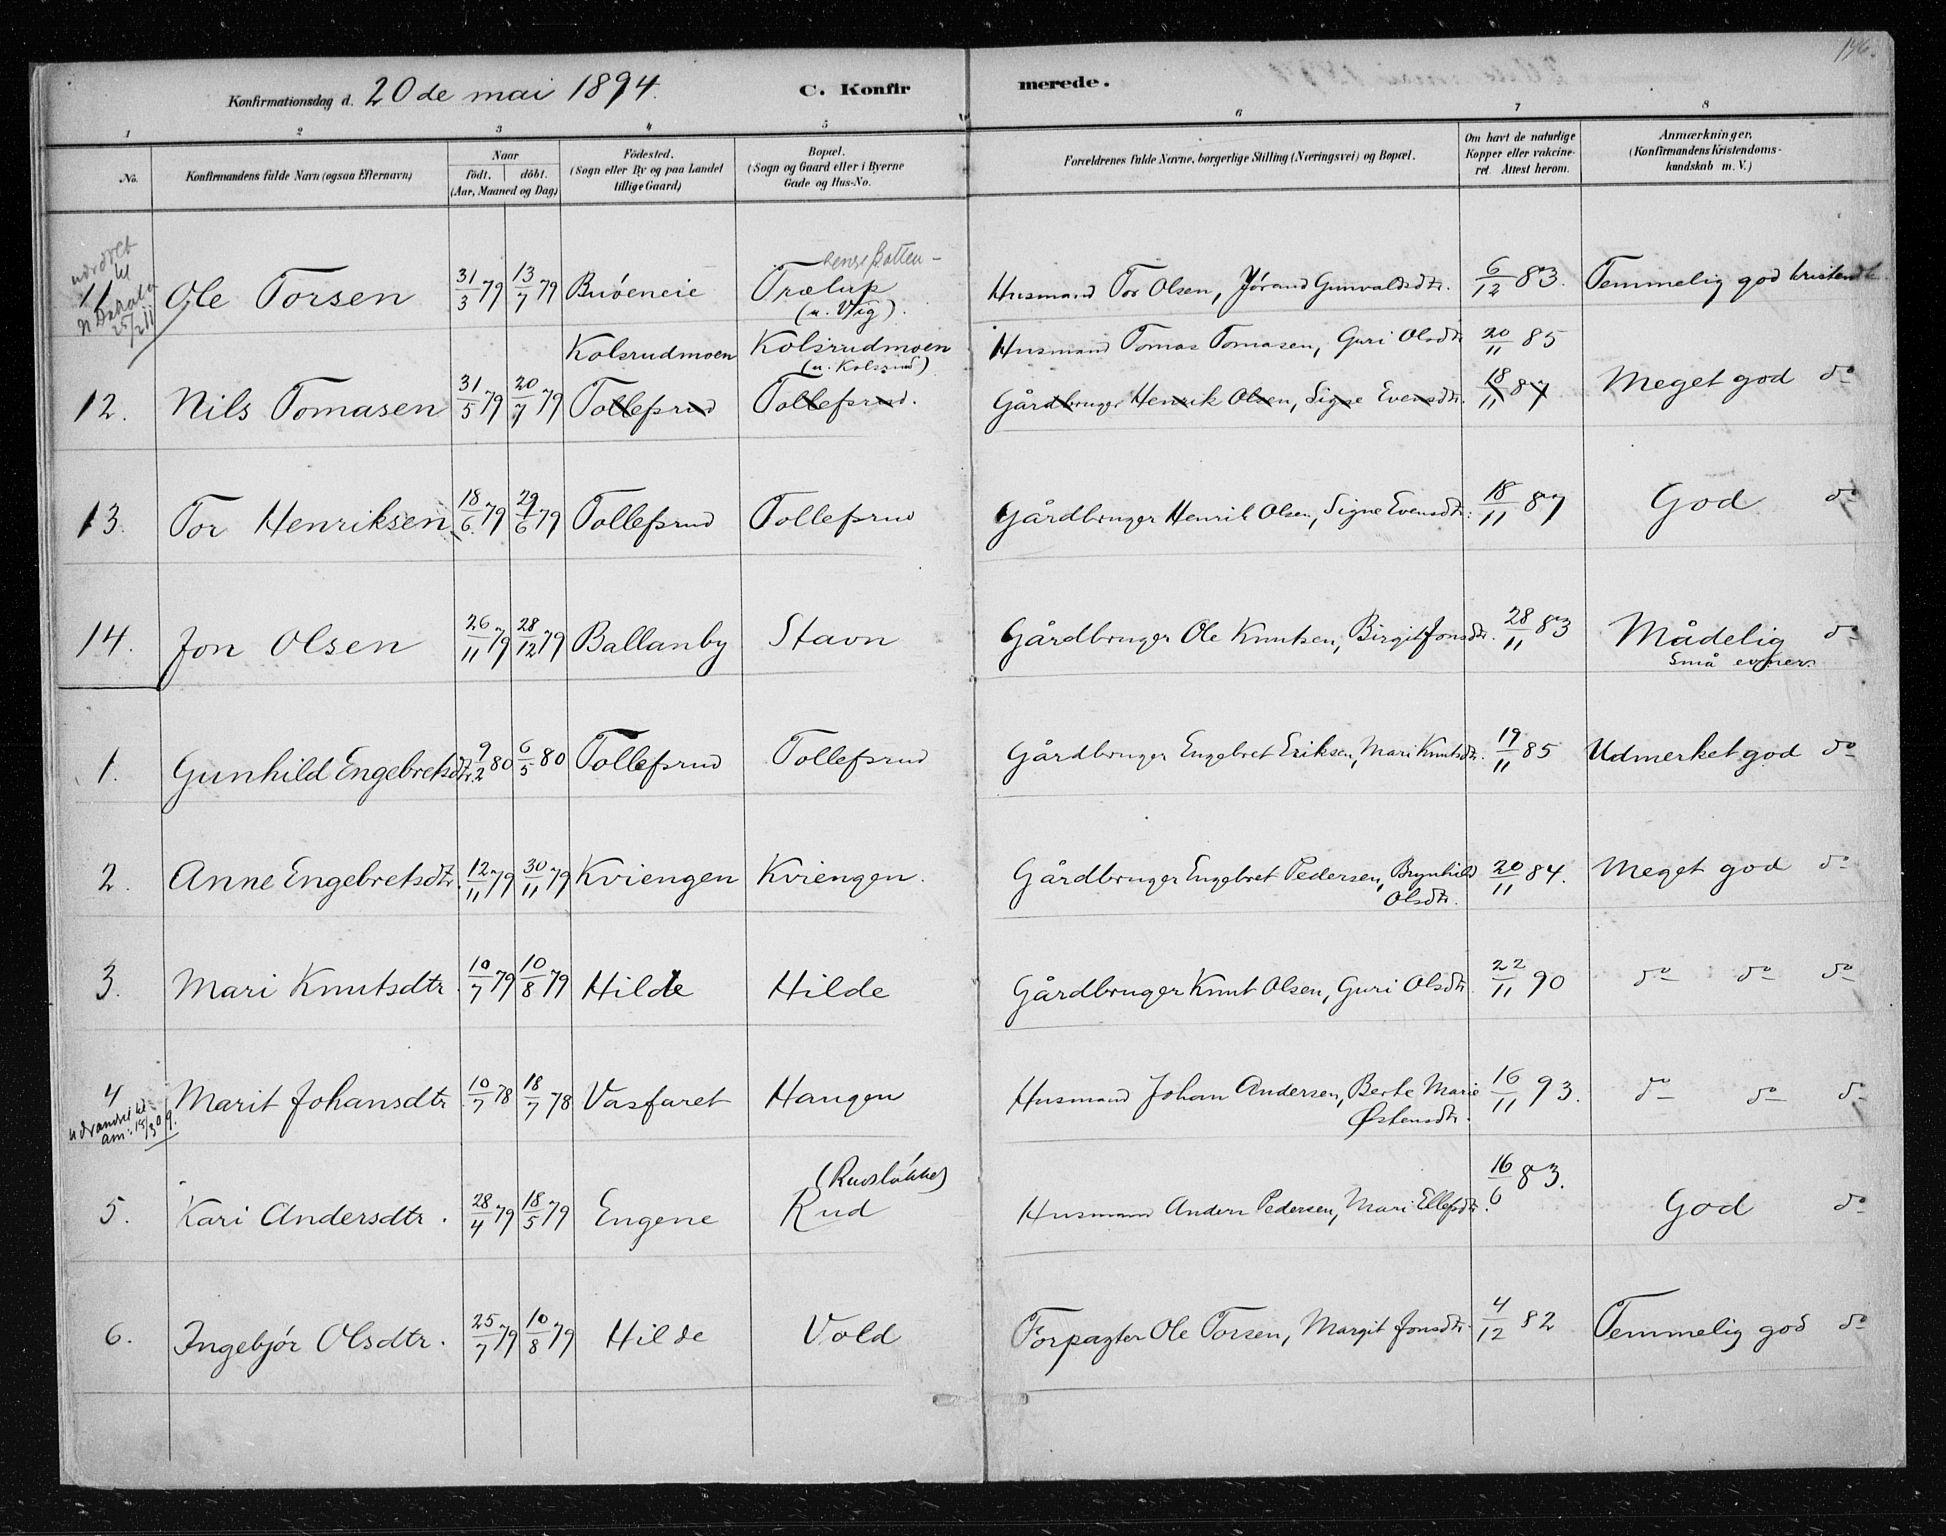 146.
Konfirmationsdag d. 20de mai 1894. C. Konfirmerede.
1 2 3 4 5 6 7 8
No. Konfirmandens fulde Navn (ogsaa Efternavn) Naar födt. döbt. (Aar, Maaned og Dag) Födested. (Sogn eller By og paa Landet tillige Gaard) Bopæl. (Sogn og Gaard eller i Byerne Gade og Hus-No. Forældrenes fulde Navne, borgerlige Stilling (Næringsvei) og Bopæl. Om havt de naturlige Kopper eller vakcineret. Attest herom. Anmærkninger. (Konfirmandens Kristendomskundskab m. V.)
11 Ole Torsen 31/3 79 13/7 79 Buöeneie Trælup (u. Vig). Husmand Tor Olsen, Jørand Gunvaldsdtr. 6/12 83. Temmelig god kristendk
udvdret til N Dakota 25/2 11
Kolsrudmoen Kolsrudmoen (u. Kolsrud) Husmand Tomas Tomasen, Guri Olsdtr 20/11 85
12. Nils Tomasen 31/5 79 20/7 79 Tollefsrud Tollefsrud. Gårdbruger Henrik Olsen, Signe Evensdtr. 18/11 87 Meget god do
13. Tor Henriksen 18/6 79 29/6 79 Tollefsrud Tollefsrud Gårdbruger Henrik Olsen, Signe Evensdtr. 18/11 87 God do
14. Jon Olsen 26/11 79 28/12 79 Ballanby Stavn Gårdbruger Ole Knutsen, Birgit Jonsdtr. 28/11 83 Mådelig do
små evner.
1. Gunhild Engebretsdtr. 9/2 80 6/5 80 Tollefsrud Tollefsrud Gårdbruger Engebret Eriksen, Mari Knutsdtr. 19/11 85 Udmerket god do
2. Anne Engebretsdtr. 12/11 79 30/11 79 Kviengen Kviengen. Gårdbruger Engebret Pedersen, Brynhild Olsdtr. 20/11 84. Meget god do
3. Mari Knutsdtr. 10/7 79 10/8 79 Hilde Hilde Gårdbruger Knut Olsen, Guri Olsdtr. 22/11 90 do do do
4 Marit Johansdtr 10/7 78 18/7 78 Vasfaret Haugen Husmand Johan Andersen, Berte Marie Østensdtr. 16/11 93. do do do
5. Kari Andersdtr. 28/4 79 18/5 79 Engene Rud Husmand Anders Pedersen, Mari Ellefsdtr. 16/6 83. God do
6. Ingebjör Olsdtr. 25/7 79 10/8 79 Hilde Vold Forpagter Ole Torsen, Margit Jonsdtr. 4/12 82 Temmelig god do